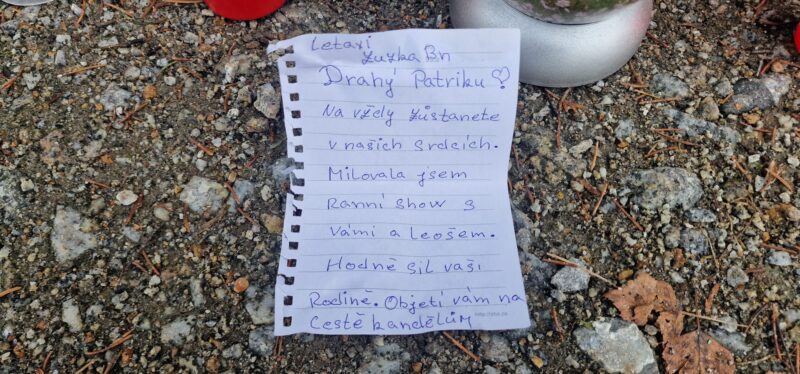 Letaxi
Zuzka Bn
Drahý Patriku
Na vždy zůstanete
v našich srdcích.
Milovala jsem
Ranní show s
Vámi a Leošem.
Hodně sil vaší
Rodině. Objetí vám na
Cestě kandělům